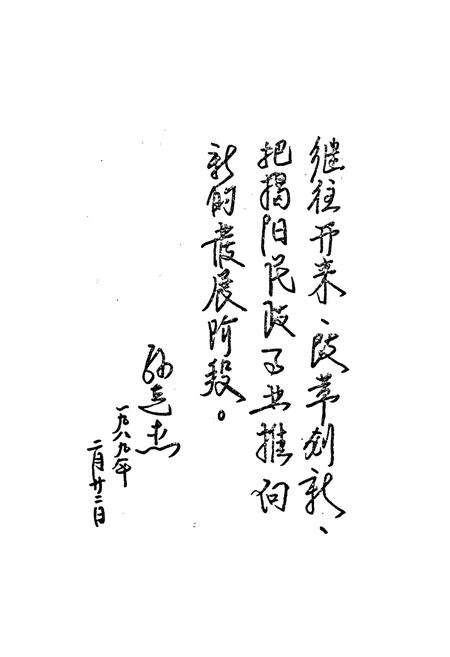 继往开来、改革创新、
把揭阳民政事业推向
新的发展阶段。
孙连杰
一九八九年
二月廿二日